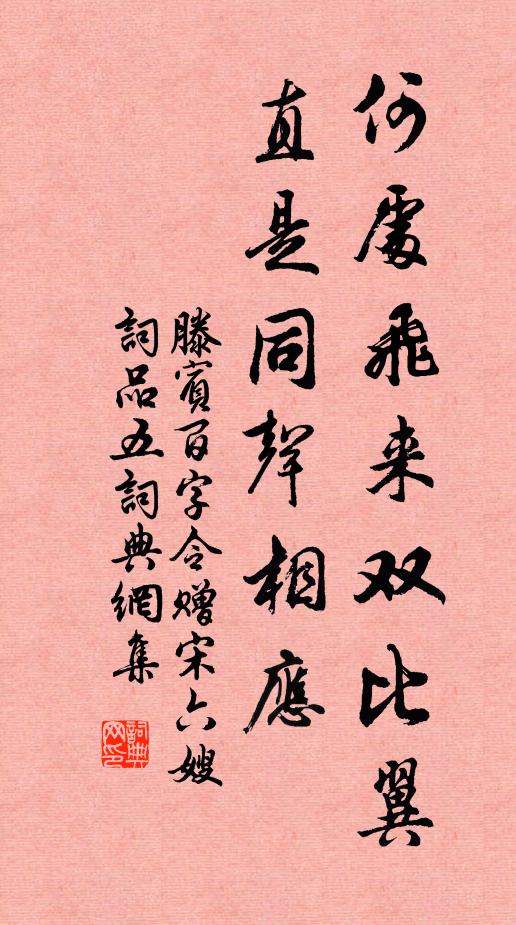 何處飛来双比翼
直是同聲相應
滕賓百字令赠宋六嫂
詞品五詞典網集
詞典网印